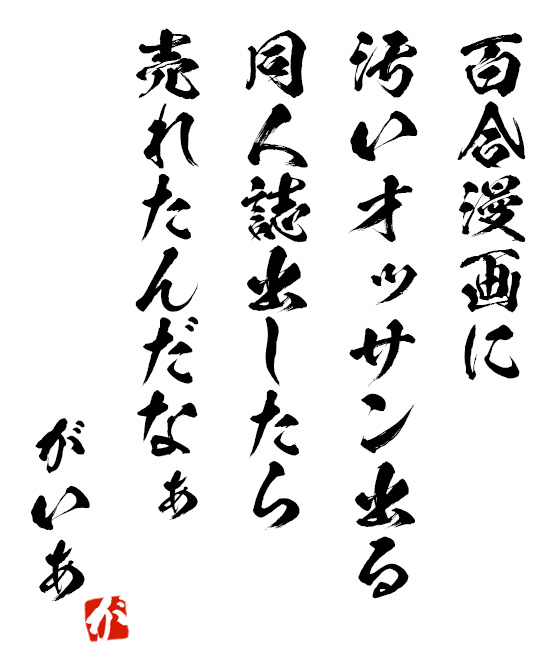 百合漫画に
汚いオッサン出る
同人誌出したら
売れたんだなぁ
がいあ
が